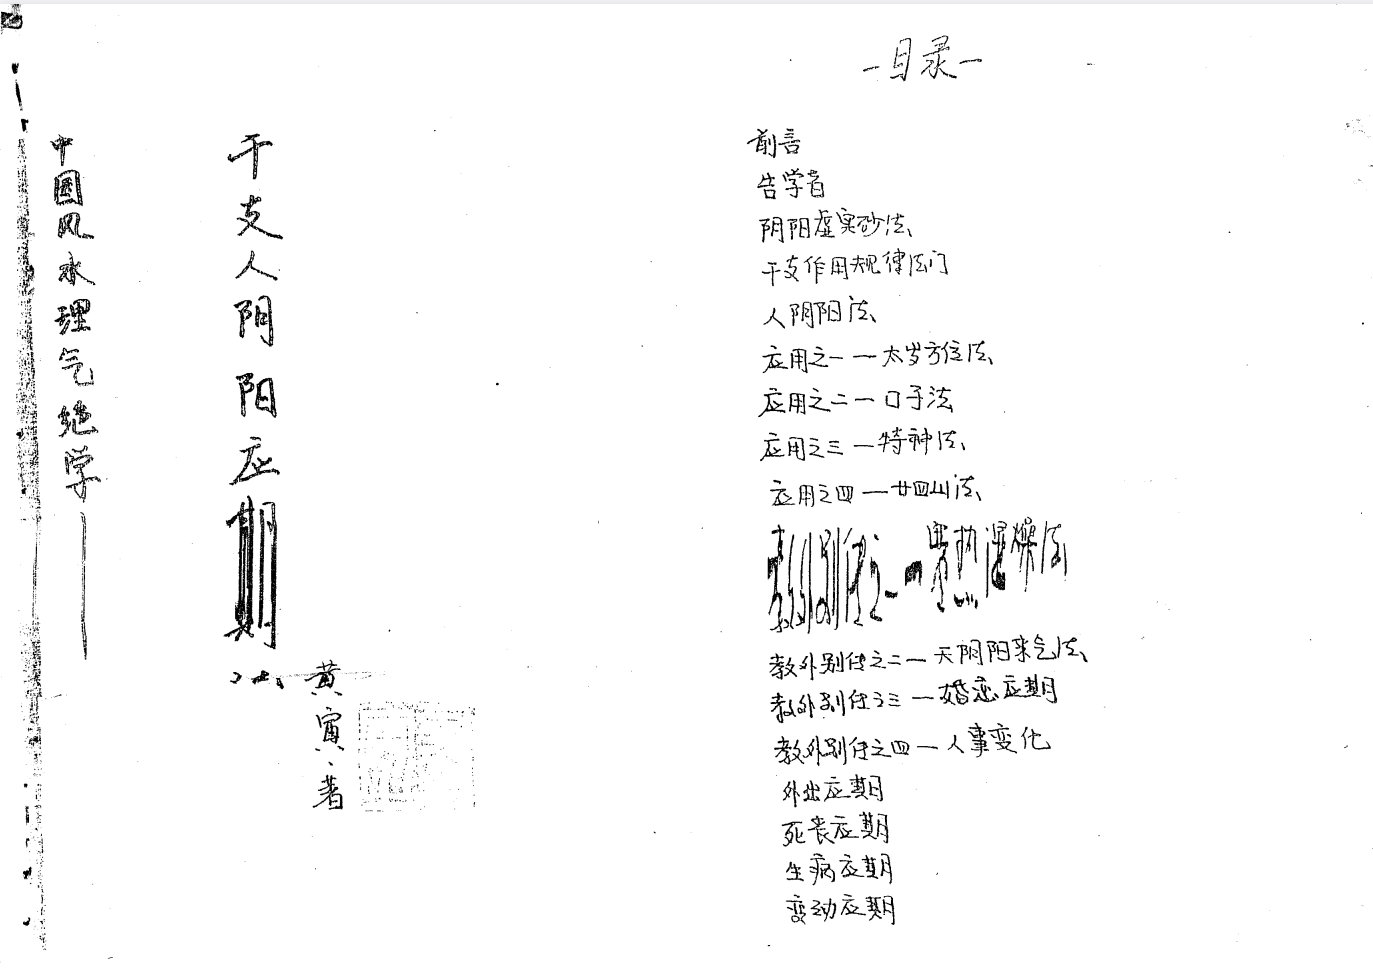 中国风水理气绝学——
干支人阴阳应期
黄寅·著
-目录-
前言
告学者
阴阳虚实砂法
干支作用规律法门
人阴阳法
应用之一一太岁方位法
应用之二一口子法
应用之三一特神法
应用之四一廿四山法
教外别传之一一寒热湿燥法
教外别传之二一天阴阳来气法
教外别传之三一婚恋应期
教外别传之四一人事变化
外出应期
死丧应期
生病应期
变动应期